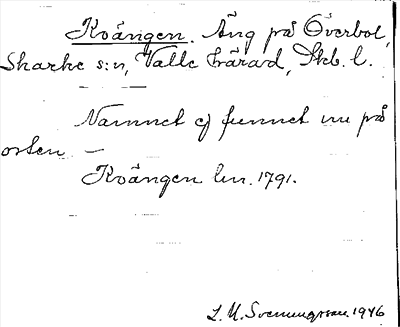 Koängen. Äng på Överbol,
Skarke s:n, Valle härad, Skb. l.
Namnet ej funnet nu på
orten. —
Koängen lm. 1791.
L. M. Svenungsson 1946